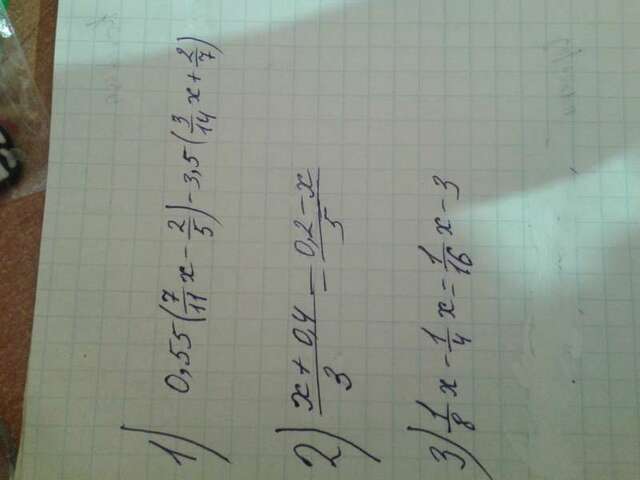 1) 0,55(7/11 x - 2/5) - 3,5(3/14 x + 2/7)
2) x + 0,4 / 3 = 0,2 - x / 5
3) 1/8 x - 1/4 x = 1/16 x - 3